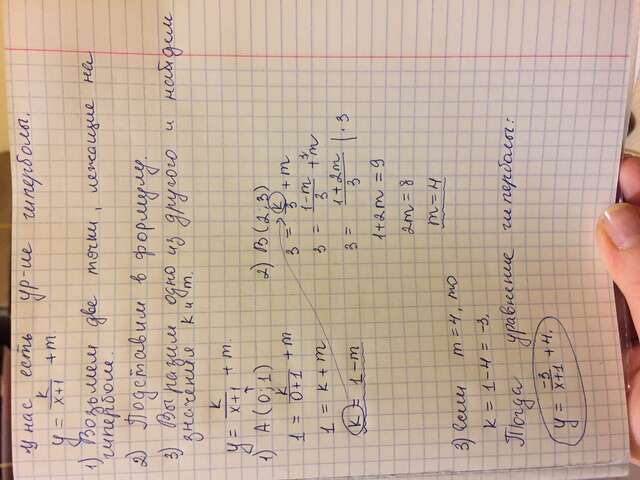 У нас есть ур-ие гиперболы.
y = k/(x+1) + m.
1) Возьмем две точки, лежащие на
гиперболе.
2) Подставим в формулу.
3) Выразим одно из другого и найдем
значения k и m.
y = k/(x+1) + m.
1) A (0; 1)
1 = k/(0+1) + m
1 = k + m
k = 1 - m
2) B (2; 3)
3 = k/3 + m
3 = (1-m)/3 + m^3
3 = (1+2m)/3 | · 3
1 + 2m = 9
2m = 8
m = 4
3) Если m = 4, то
k = 1 - 4 = -3.
Тогда уравнение гиперболы:
y = -3/(x+1) + 4.